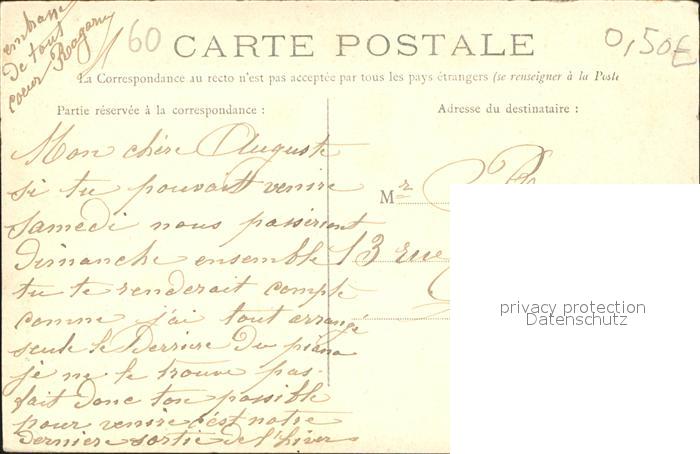 embrasse
de tout
coeur
160
0,50€
CARTE POSTALE
La Correspondance au recto n'est pas acceptée par tous les pays étrangers (se renseigner à la Poste
Partie réservée à la correspondance :
Adresse du destinataire :
Mon chère Auguste
si tu pouvait venire
samedi nous passeriont
dimanche ensemble
tu te renderait compte
comme j'ai tout arrangé
seule le Derrière du piano
je ne le trouve pas.
fait donc ton possible
pour venire c'est notre
dernier sortie de l'hiver
Mr
13 rue
privacy protection
Datenschutz